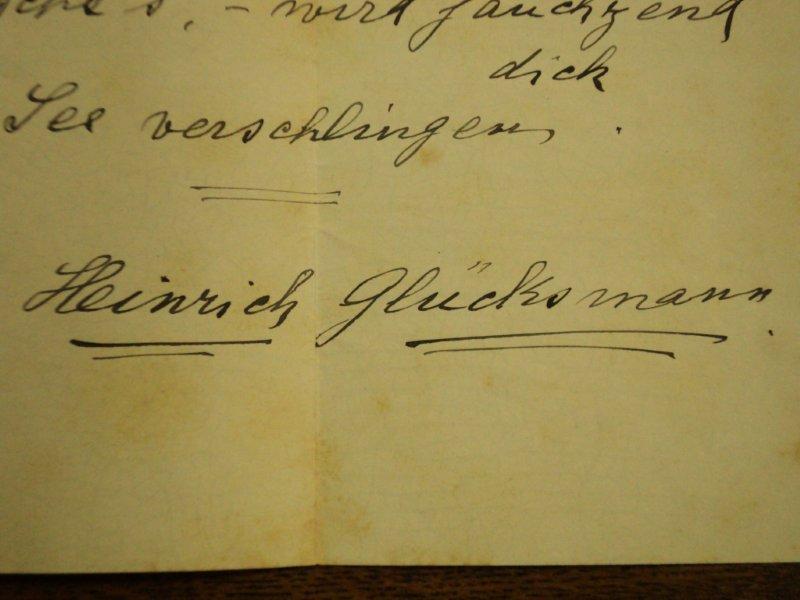 – wird jauchzend
dick
See verschlingen.
Heinrich Glücksmann.